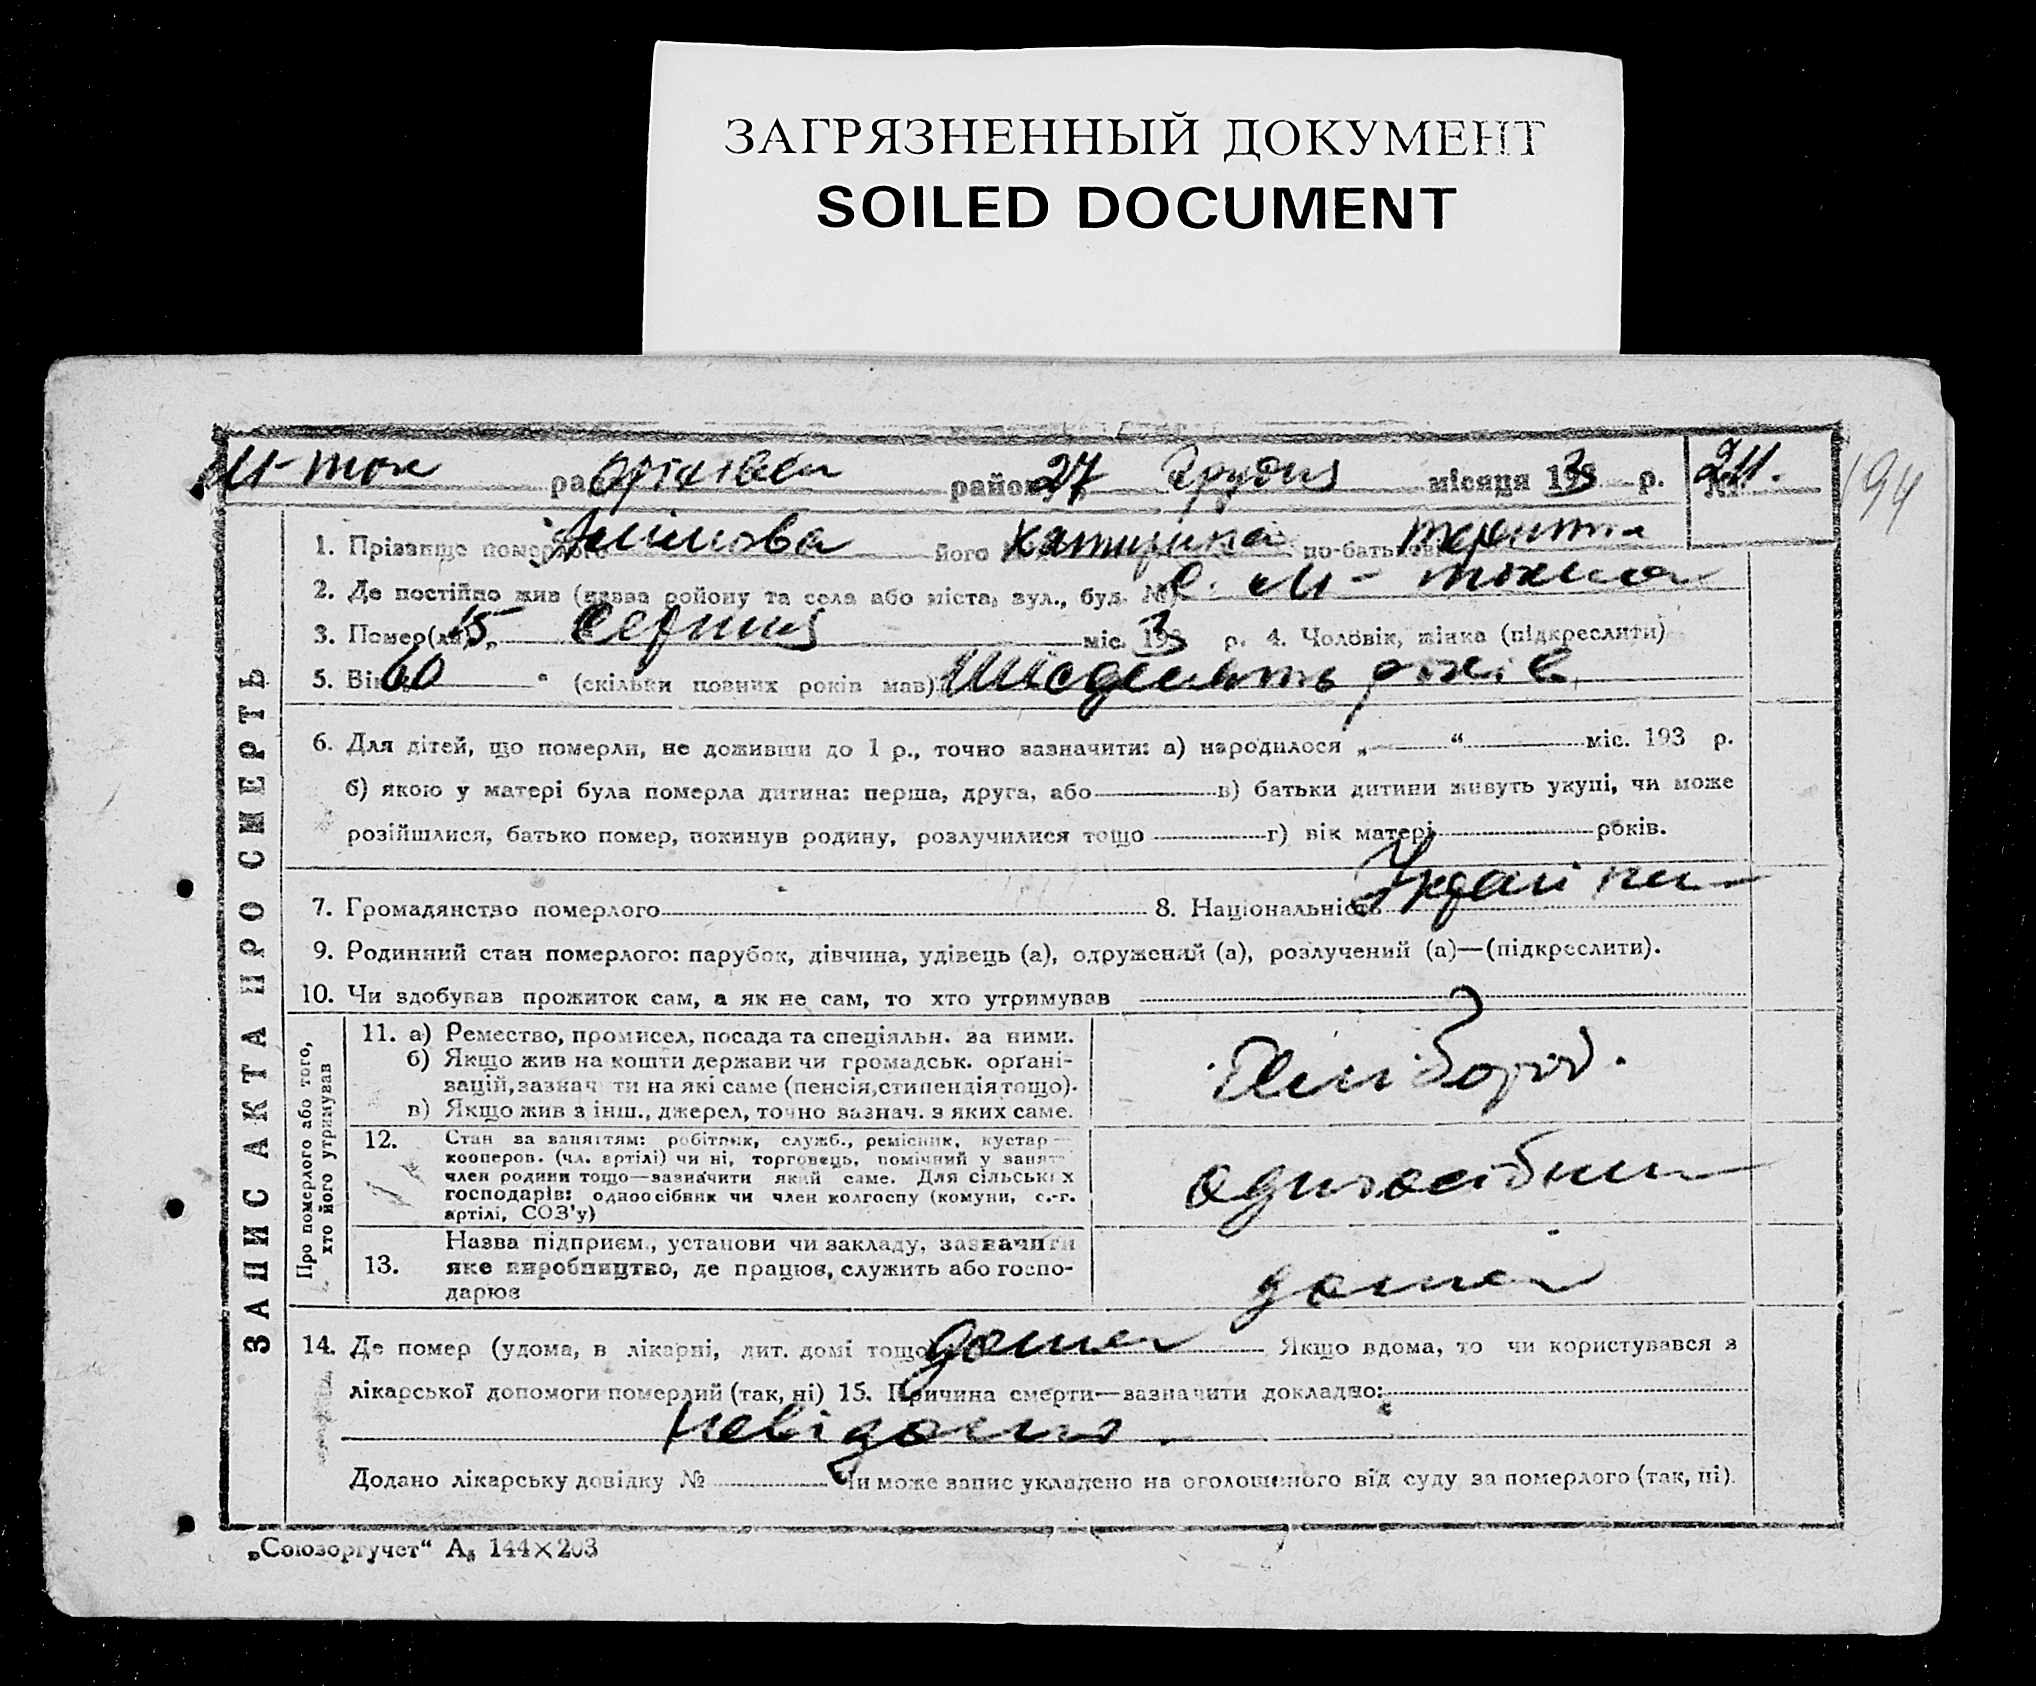 ЗАГРЯЗНЕННЫЙ ДОКУМЕНТ
SOILED DOCUMENT
М-ток ра Оріхівськ район 27 Грудня місяця 193 3 р. № 211. 194
1. Прізвище померлого його по-батькові
2. Де постійно жив (назва району та села або міста, вул., буд. № с. М-
3. Помер(ла) 15 „ Серпня міс. 193 3 р. 4. Чоловік, жінка (підкреслити)
5. Вік 60 “ (скільки повних років мав) Шісдесять років
6. Для дітей, що померли, не доживши до 1 р., точно зазначити: а) народилося „ “ міс. 193 р.
б) якою у матері була померла дитина: перша, друга, або в) батьки дитини живуть укупі, чи може
розійшлися, батько помер, покинув родину, розлучилися тощо г) вік матері років.
7. Громадянство померлого 8. Національність
9. Родинний стан померлого: парубок, дівчина, удівець (а), одружений (а), розлучений (а)—(підкреслити).
10. Чи здобував прожиток сам, а як не сам, то хто утримував
ЗАПИС АКТА ПРО СМЕРТЬ
Про померлого або того,
хто його утримував
11. а) Ремество, промисел, посада та спеціяльн. за ними.
б) Якщо жив на кошти держави чи громадськ. орґані-
зацій, зазначити на які саме (пенсія, стипендія тощо).
в) Якщо жив з інш., джерел, точно зазнач. з яких саме.
Хлібороб.
12. Стан за заняттям: робітник, служб., ремісник, кустар—
кооперов. (чл. артілі) чи ні, торговець, помічний у занят.
член родини тощо—зазначити який саме. Для сільських
господарів: одноосібник чи член колгоспу (комуни, с.-г.
артілі, СОЗ'у)
одноосібник
13. Назва підприєм., установи чи закладу, зазначити
яке виробництво, де працює, служить або госпо-
дарює
дома
14. Де помер (удома, в лікарні, дит. домі тощо) дома Якщо вдома, то чи користувався з
лікарської допомоги померлий (так, ні) 15. Причина смерти—зазначити докладно:
невідомо.
Додано лікарську довідку № Чи може запис укладено на оголошеного від суду за померлого (так, ні).
„Союзоргучет“ А₅ 144×203